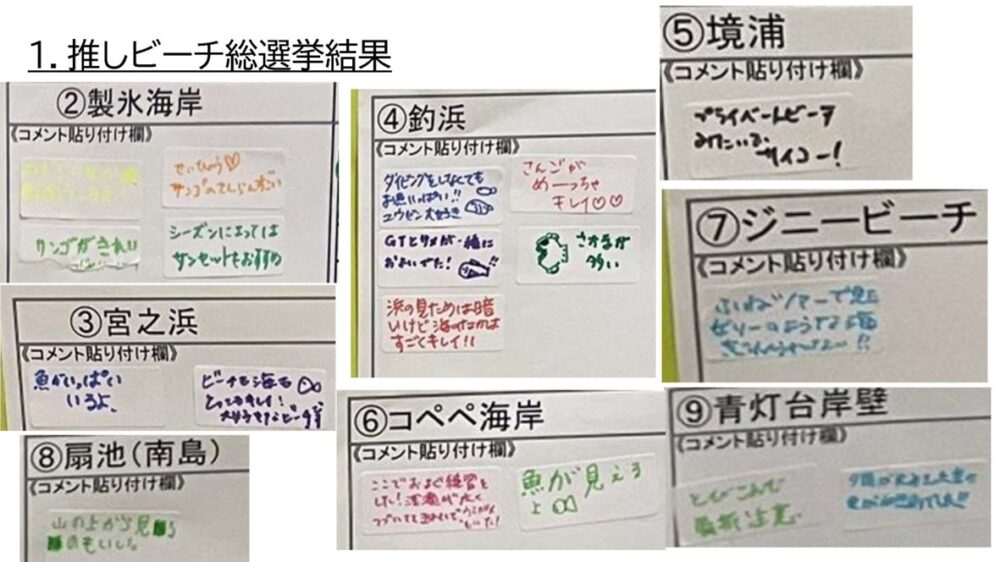 1. 推しビーチ総選挙結果
②製氷海岸
《コメント貼り付け欄》
せいひょう♡
サンゴのてんらんかい
サンゴがきれい
シーズンによっては
サンセットもおすすめ
③宮之浜
《コメント貼り付け欄》
魚がいっぱい
いるよ、
ビーチも海も
とってもキレイ！
大好きなビーチです
④釣浜
《コメント貼り付け欄》
ダイビングをしなくても
お魚いっぱい!!
ユウゼン大好き
さんごが
めーっちゃ
キレイ♡♡
GTとサメが一緒に
およいでた！
さかなが
多い
浜の見ためは暗
いけど海のなかは
すごくキレイ！！
⑤境浦
《コメント貼り付け欄》
プライベートビーチ
みたいで
サイコー！
⑥コペペ海岸
《コメント貼り付け欄》
ここでおよぐ練習を
した！浅瀬が広く
魚が見える
よ
⑦ジニービーチ
《コメント貼り付け欄》
ふねツアーで見た
ゼリーのような海
⑧扇池(南島)
《コメント貼り付け欄》
山の上から見る
のもいい。
⑨青灯台岸壁
《コメント貼り付け欄》
とびこんで